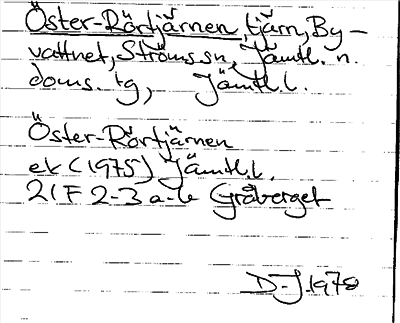 Öster-Rörtjärnen, tjärn, By-
vattnet, Ströms sn, Jämtl. n.
doms. tg, Jämtl. l.
Öster-Rörtjärnen
ek (1975) Jämtl. l.
21F 2-3 a-b Gråberget
D-J 1978